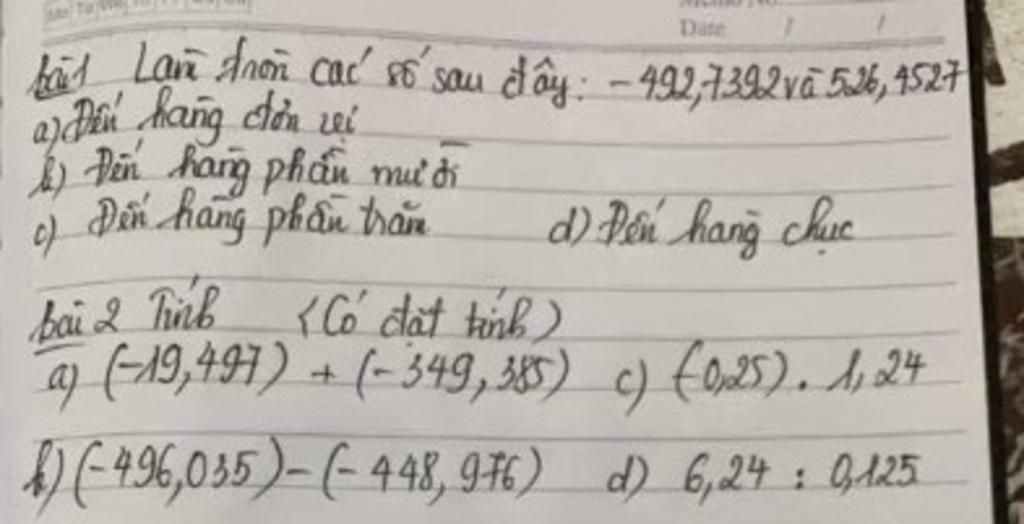 Date / /
bài 1 Làm tròn các số sau đây: -492,7392 và 526,4527
a) Đến hàng đơn vị
b) Đến hàng phần mười
c) Đến hàng phần trăm d) Đến hàng chục
bài 2 Tính (Có đặt tính)
a) (-19,497) + (-349,385) c) (-0,25) . 1,24
b) (-496,035) - (-448,976) d) 6,24 : 0,125